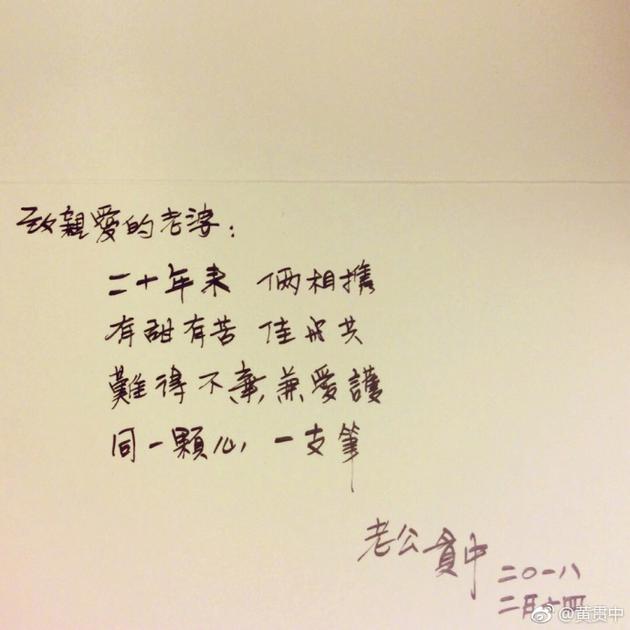 致親愛的老婆：
二十年来 倆相攜
有甜有苦 佳兒共
難得不棄兼愛護
同一顆心 一支筆
老公貫中
二〇一八
二月十四
@黄贯中